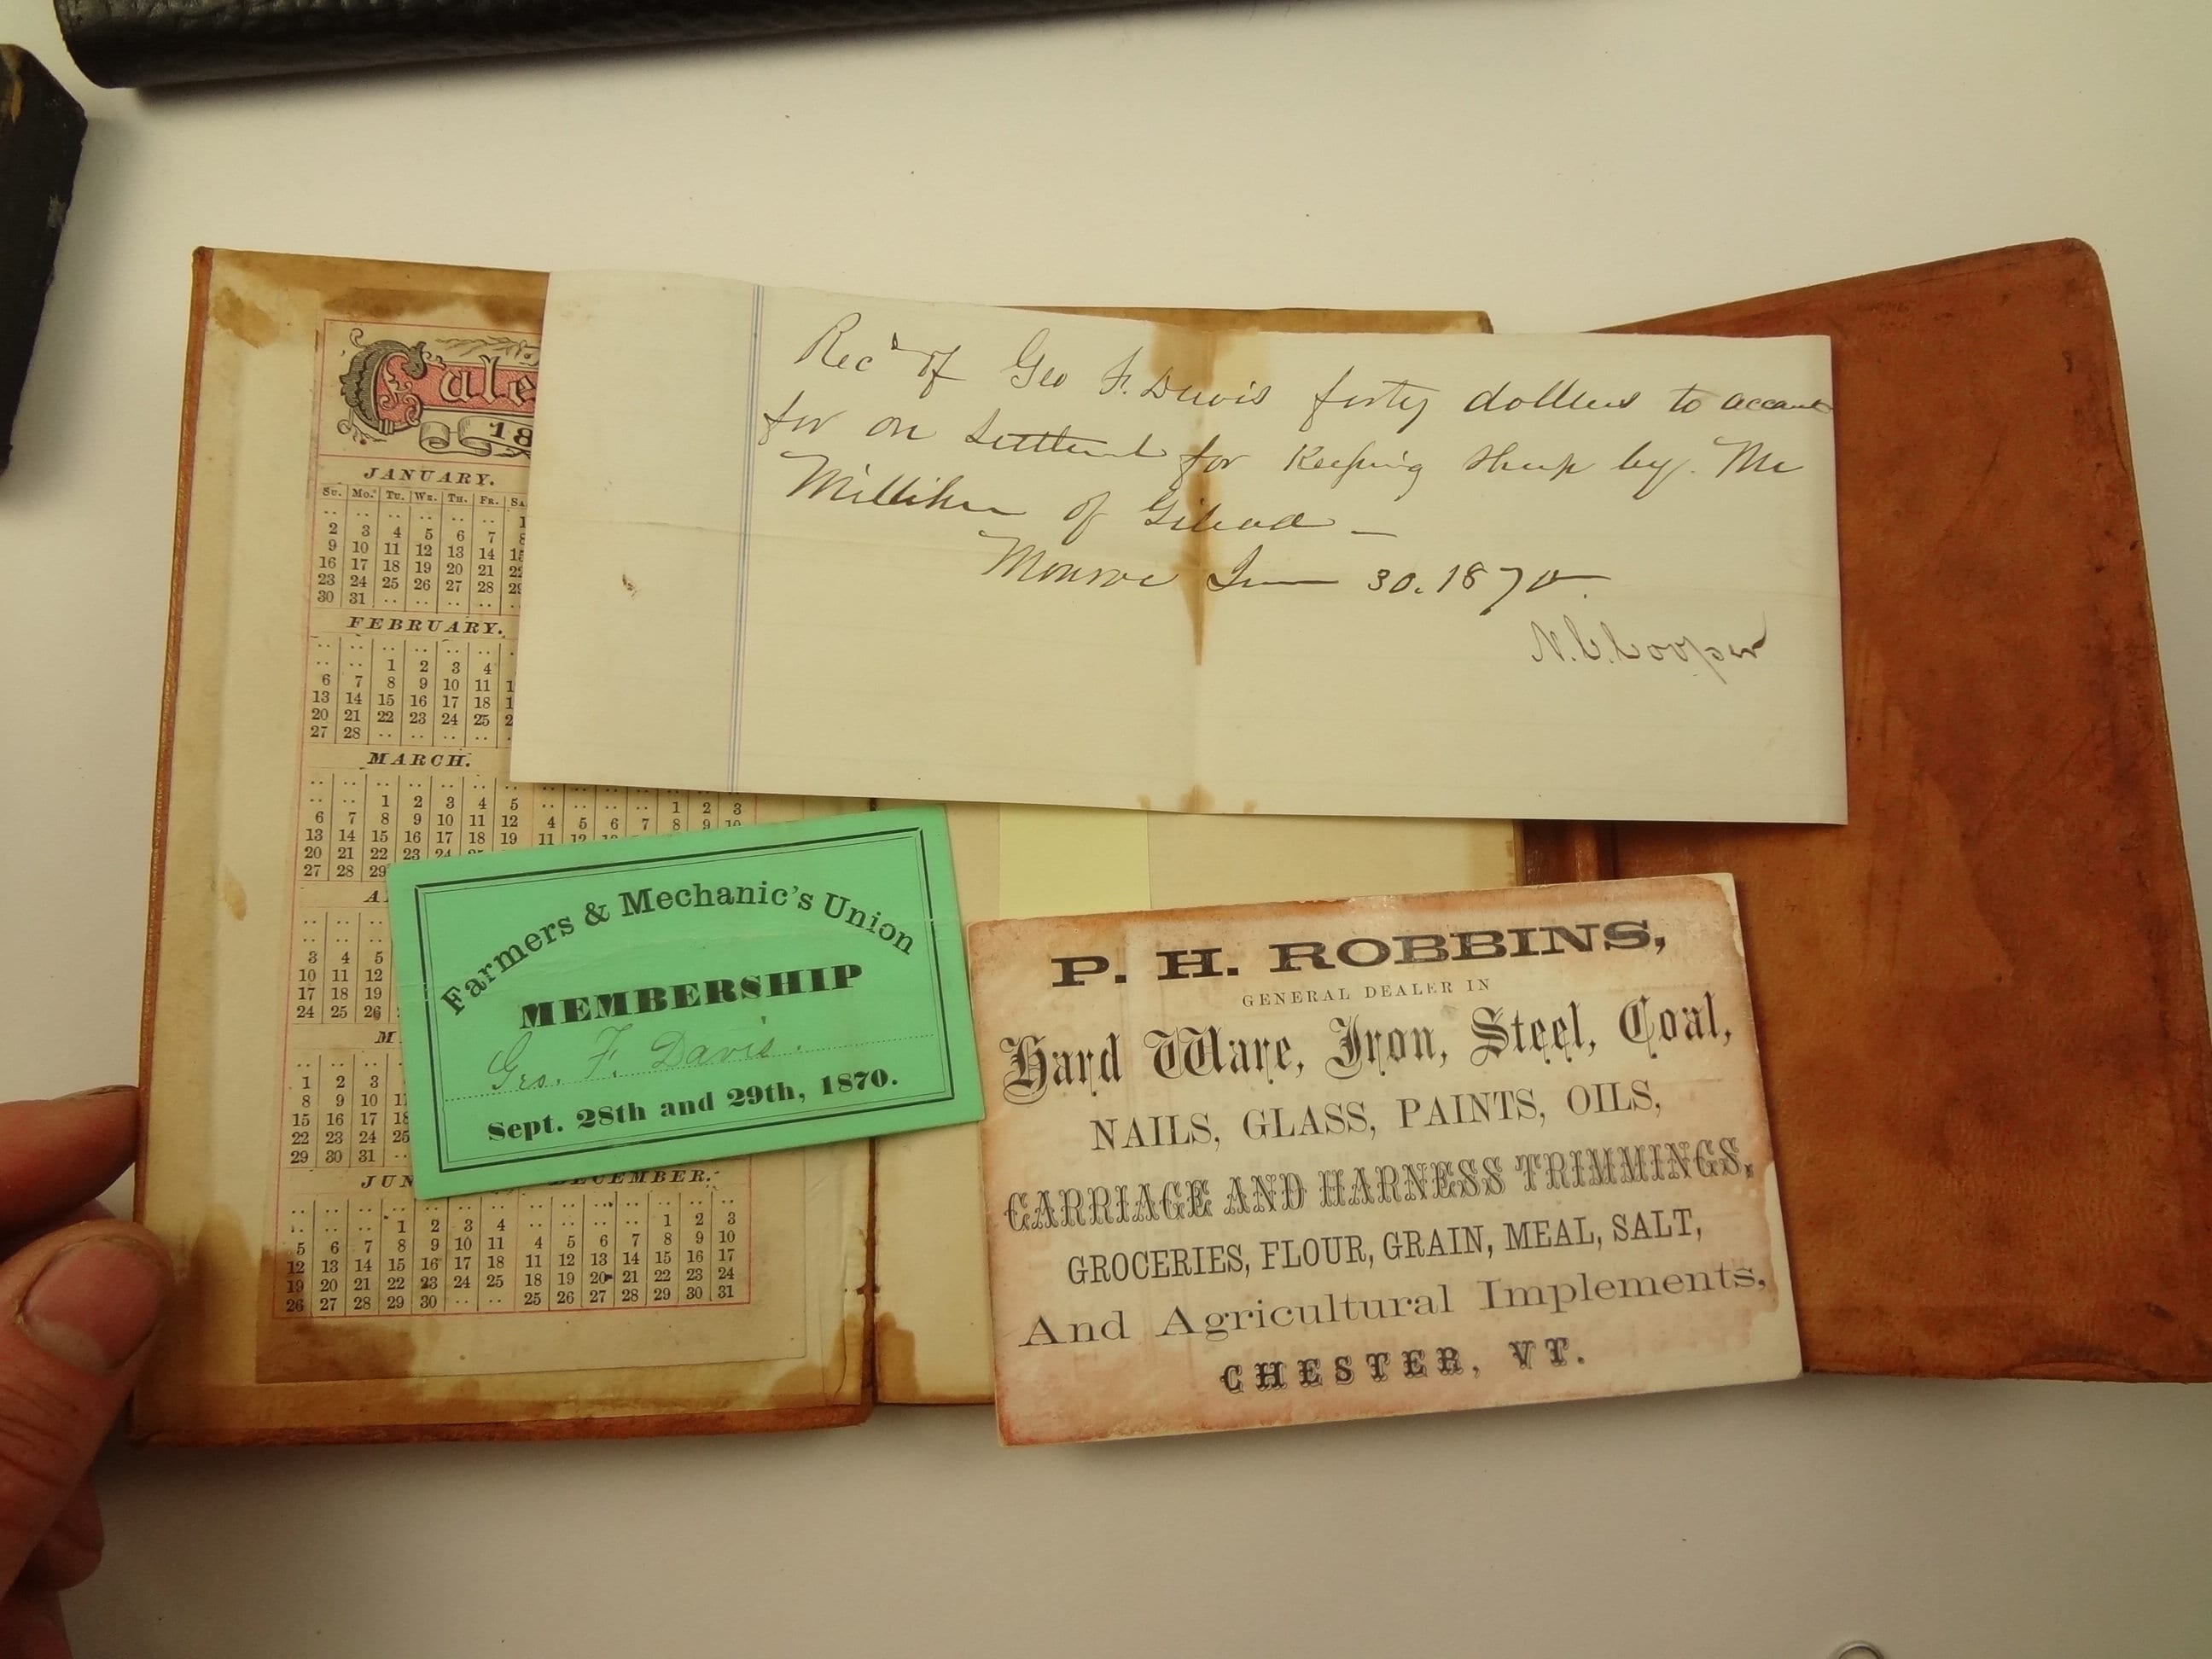 Recd of Geo F. Davis forty dollers to account
for on Settlement for Keeping Sheep by Mc
Milliken of Gilead —
Monroe June 30. 1870.
N. C. Cooper
Cale
18
JANUARY.
Su. Mo. Tu. We. Th. Fr. Sa
.. .. .. .. .. .. 1
2 3 4 5 6 7 8
9 10 11 12 13 14 15
16 17 18 19 20 21 22
23 24 25 26 27 28 29
30 31 .. .. .. .. ..
FEBRUARY.
.. .. .. .. .. ..
.. .. 1 2 3 4
6 7 8 9 10 11 1
13 14 15 16 17 18 1
20 21 22 23 24 25 2
27 28 .. .. .. ..
MARCH.
.. .. .. .. .. ..
.. .. 1 2 3 4 5 .. .. .. .. 1 2 3
6 7 8 9 10 11 12 4 5 6 7 8 9 10
13 14 15 16 17 18 19 11 12
20 21 22 23 24
27 28 29
A
.. .. ..
.. .. ..
3 4 5
10 11 12
17 18 19
24 25 26
M
.. .. ..
1 2 3
8 9 10 11
15 16 17 18
22 23 24 25
29 30 31 ..
JUN DECEMBER.
.. .. .. .. .. .. .. .. .. .. .. .. .. ..
.. .. .. 1 2 3 4 .. .. .. .. 1 2 3
5 6 7 8 9 10 11 4 5 6 7 8 9 10
12 13 14 15 16 17 18 11 12 13 14 15 16 17
19 20 21 22 23 24 25 18 19 20 21 22 23 24
26 27 28 29 30 .. .. 25 26 27 28 29 30 31
Farmers & Mechanic's Union
MEMBERSHIP
Geo. F. Davis.
Sept. 28th and 29th, 1870.
P. H. ROBBINS,
GENERAL DEALER IN
Hard Ware, Iron, Steel, Coal,
NAILS, GLASS, PAINTS, OILS,
CARRIAGE AND HARNESS TRIMMINGS,
GROCERIES, FLOUR, GRAIN, MEAL, SALT,
And Agricultural Implements,
CHESTER, VT.